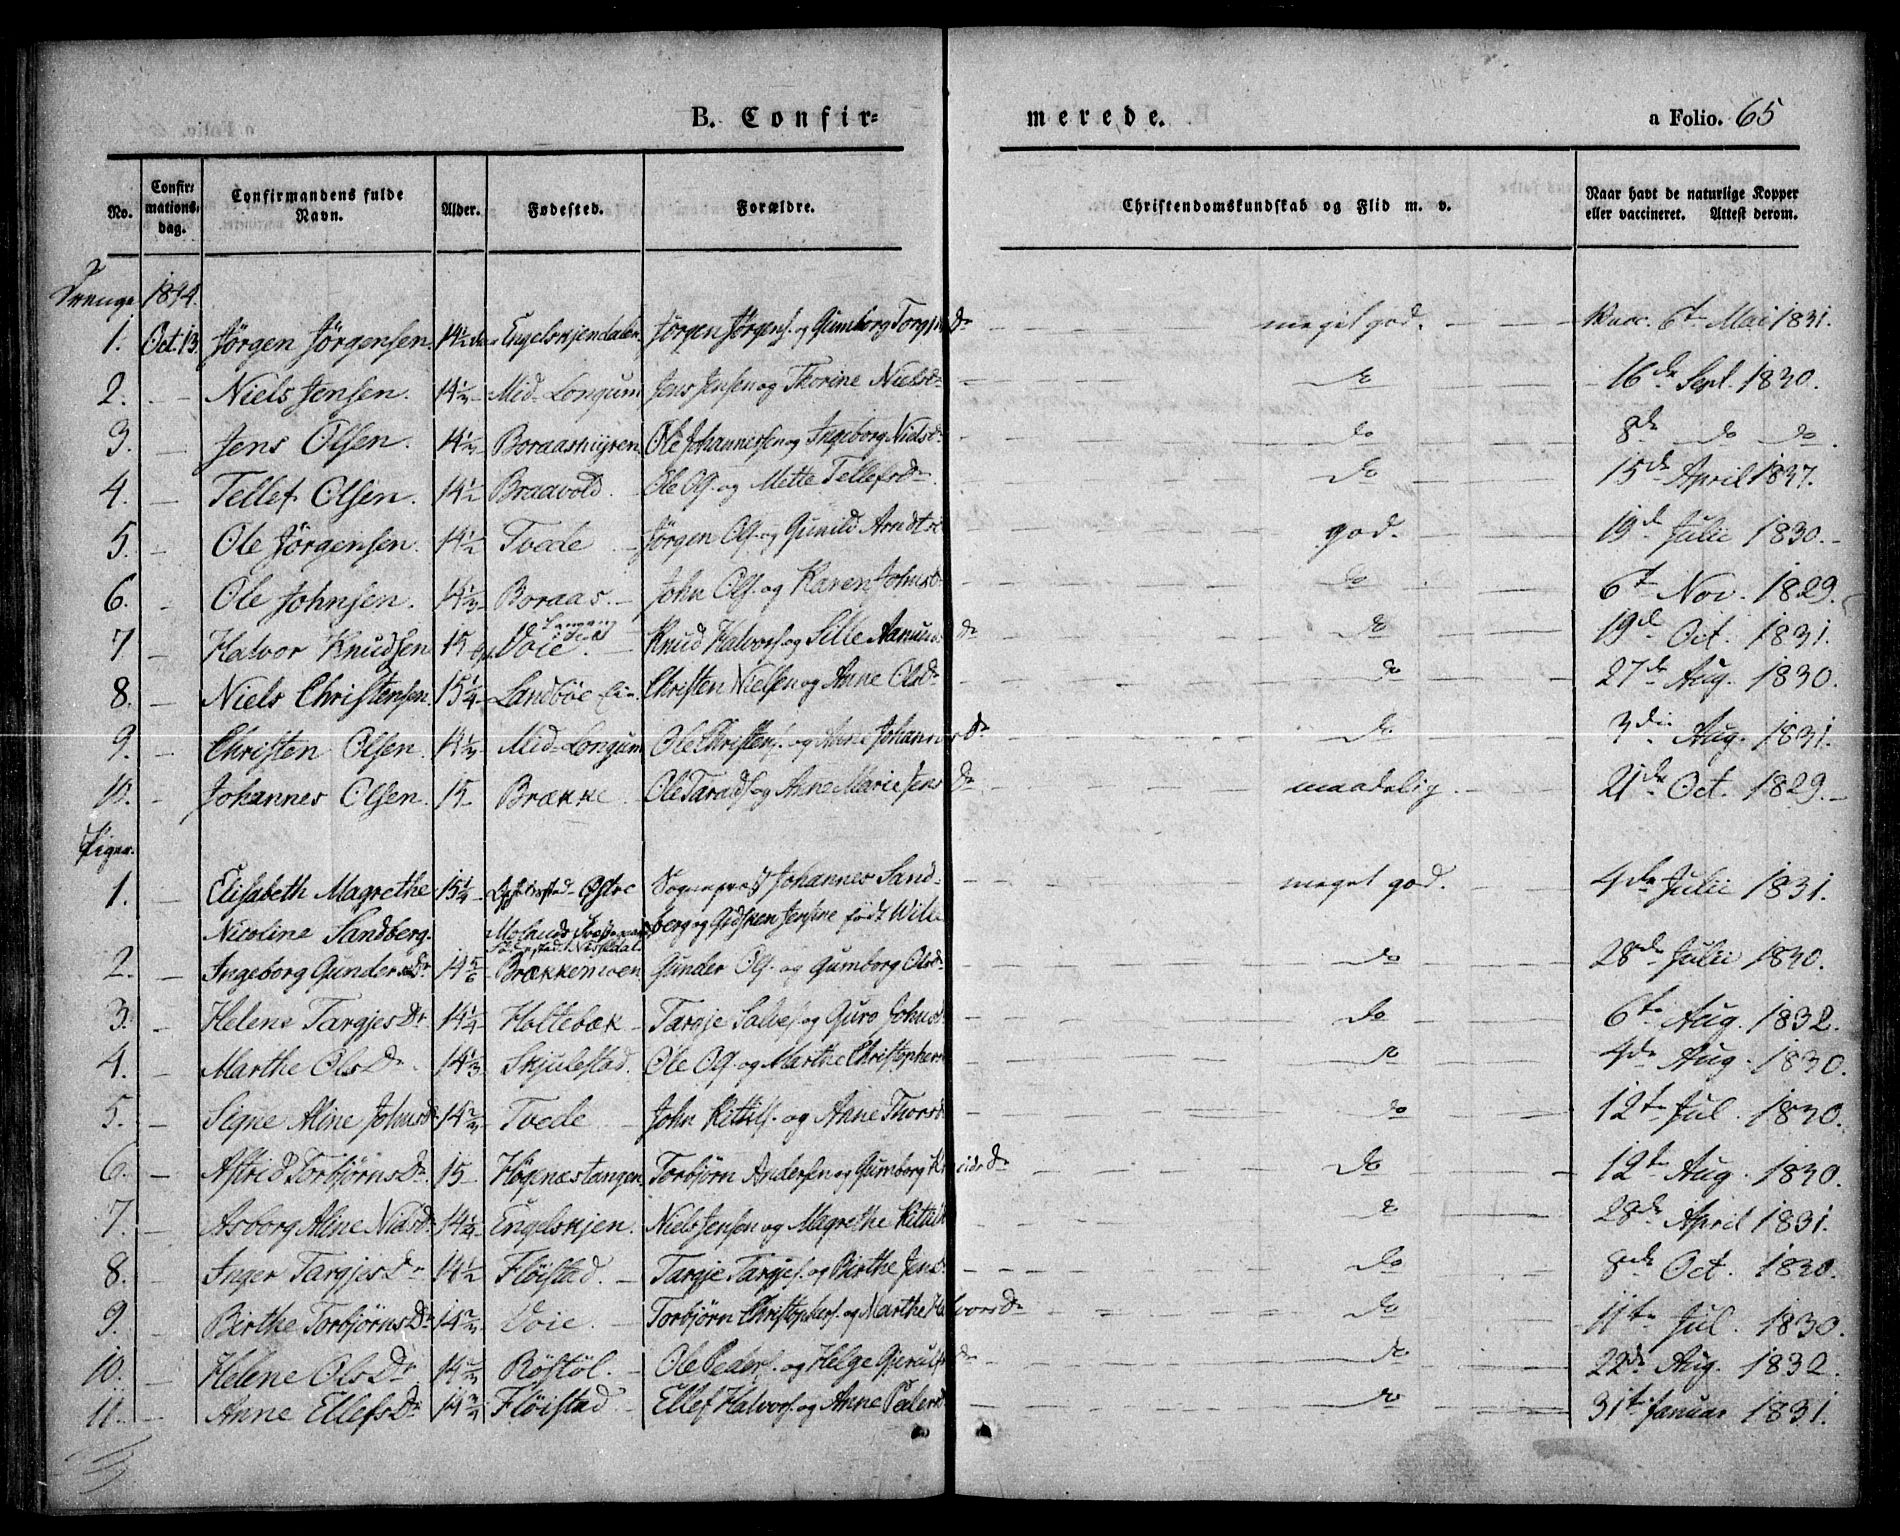 B. Confir= merede. a Folio. 65
No. Confir= mations= dag. Confirmandens fulde Navn. Alder. Fødested. Forældre. Christendomskundskab og Flid m. v. Naar havt de naturlige Kopper eller vaccineret. Attest derom.
Drenge 1844.
1. Oct. 13 Jörgen Jörgensen. 14 1/2 Engelskjendalen Jörgen Jörgens. og Gumborg Torgjusd meget god. Vacc. 6te Mai 1831.
2. Niels Jensen. 14 1/2 Mid-Longum Jens Jensen og Thorine Nielsdr do 16de Sept. 1830.
3. Jens Olsen. 14 1/2 Boraasmyren Ole Johannesen og Ingeborg Nielsd. do 8de do do.
4. Tellef Olsen. 14 1/2 Braavold. Ole Ols. og Mette Tellefsdr. do 15de April 1837.
5. Ole Jörgensen. 14 1/2 Tvede Jörgen Ols. og Gunild Arndtsd god. 19de Julii 1830.
6. Ole Johnsen. 14 1/3 Boraas. John Ols. og Karen Johnsd. do 6te Nov. 1829.
7 Halvor Knudsen 15 Voie. Knud Halvors. og Sille Aanunds dr do 19de Oct. 1831.
8. Niels Christensen. 15 1/4 Landböe Christen Nielsen og Anne Olsdr do 27de Aug. 1830.
9. Christen Olsen. 14 1/2 Mid-Longum Ole Christens. og Anne Johannesdr do 3die Aug. 1831.
10. Johannes Olsen. 15 Brække. Ole Taralds. og Anne Marie Jens Dr maadelig. 21de Oct. 1829.
Piger.
1. Elisabeth Magrethe 15 1/4 Østre Sognepræst Johannes Sand- meget god. 4de Julii 1831.
Nicoline Sandberg. berg og Gidsken Jensine födt Wille
2. Ingeborg Gundersdr 14 5/6 Brækkemoen Gunder Ols. og Gumborg Olsd. do 28de Julii 1830.
3. Helene Targjesdr 14 1/4 Holtebæk Targje Salves. og Guro Johnsd. do 6te Aug. 1832.
4. Marthe Olsdr 14 1/3 Skjulestad. Ole Ols. og Marthe Christophersd do 4de Aug. 1830.
5. Signe Aline Johnsd. 14 2/3 Tvede John Kittils. og Anne Thorsd. do 12te Jul. 1830.
6. Astrid Torbjørnsdr. 15 Högnæstangen Torbjörn Andersen og Gumborg dr do 12te Aug. 1830.
7. Asborg Aline Nielsd. 14 1/2 Engelskjen. Niels Jensen og Magrethe Kittilsd do 28de April 1831.
8. Inger Targjesdr 14 1/2 Flöistad. Targje Targjes. og Birthe Jensd. do 8de Oct. 1830.
9. Birthe Torbjörnsdr 14 2/3 Voie. Torbjörn Christophers. og Marthe Halvorsdr do 11te Jul. 1830.
10. Helene Olsdr 14 1/2 Röstöl. Ole Peders. og Helge dr do 22de Aug. 1832.
11. Anne Ellefsdr 14 3/4 Flöistad Ellef Halvors. og Anne Pedersd. do 31te Januar 1831.